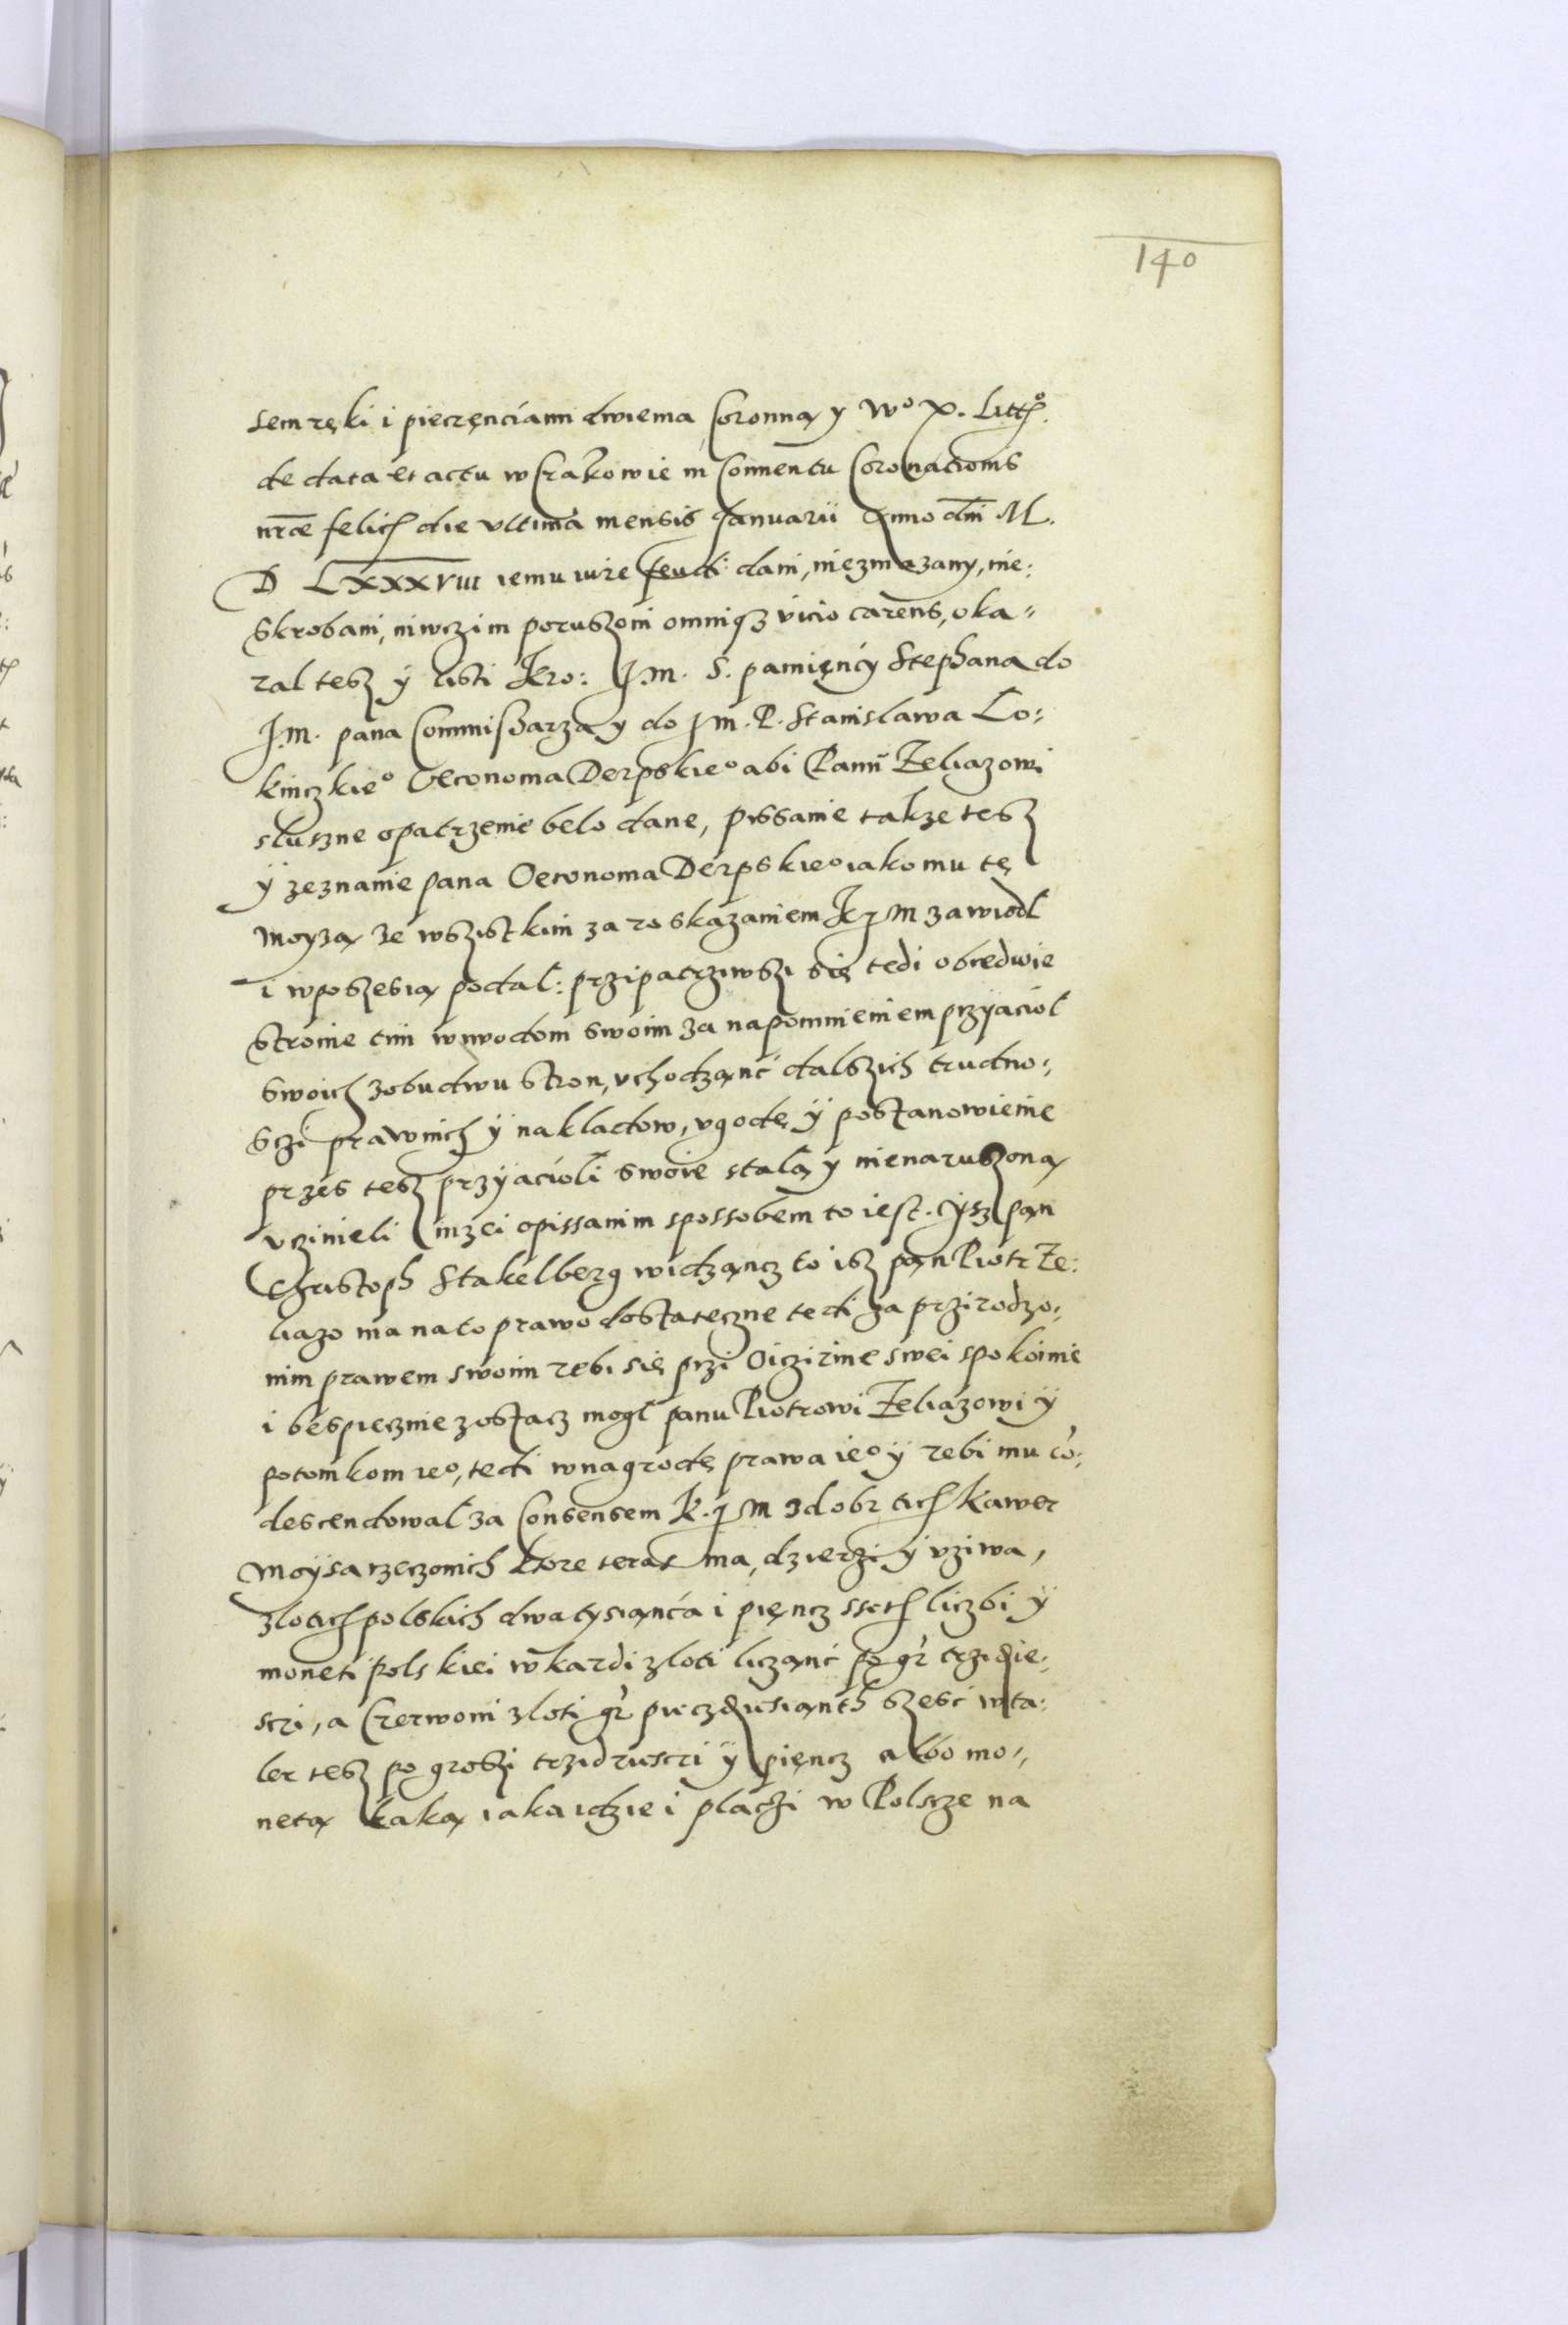 140
sem ręki i pieczęnciami dwiema Coronną y Wº X. Littº.
de data et actu w Crakowie in Conuentu Coronationis
nrae felicis die ultima mensis Januarii Anno dni M.
D LXXXVIII iemu iure feudi dani, niezmazany, nie:
skrobani, niwczim poruszoni omnique vicio carens, oka-
zal tesz ÿ listi Kro: J.M. S. pamięnćy Stephana do
J.M. pana Commissarza y do J M. P. Stanislawa Lo:
kniczkieº Oeconoma Derpskieº abi Panu Zeliazowi
sluszne opatrzenie belo dane, pissanie takze tesz
ÿ zeznanie pana Oeconoma Derpskieº iako mu tę
moyzą ze wszistkim za roskazaniem K J M zawiodl
i wposzesią podal: przipatrziwszi się tedi obiedwie
stronie tim wywodom swoim za napomnieniem przyaciol
swoich zobudwu stron, vchodząnć dalszich trudno:
sczi prawnich ÿ nakladow, vgodę ÿ postanowienie
przes tesz przyacioli swoie stalą y nienaruszoną
vczinieli inzei opissanim spossobem to iest. Jysz pan
Christoph Stakelberg widząncz to isz pan Piotr Ze:
liazo ma na to prawo dostateczne tedi za przirodzo:
nim prawem swoim zebi się przi Oiczizine swei spokoinie
i bespiecznie zostacz mogl panu Piotrowi Zeliazowi ÿ
potomkom ieº, tedi wnagrodę prawa ieº ÿ zebi mu co:
descendowal za Consensem K. J M z dobr tich Kawer
moÿsa rzeczonich ktore teraz ma, dzierzi ÿ vziwa,
zlotich polskich dwa tysiąnća i pięncz sseth liczbi ÿ
moneti polskiei w kazdi zloti licząnć po gr trzidzie:
sci, a Czerwoni zloti gr sześć w ta:
ler tesz po groszi trzidziesci ÿ pięncz albo mo:
netą taką iaka idzie i placzi w Polscze na